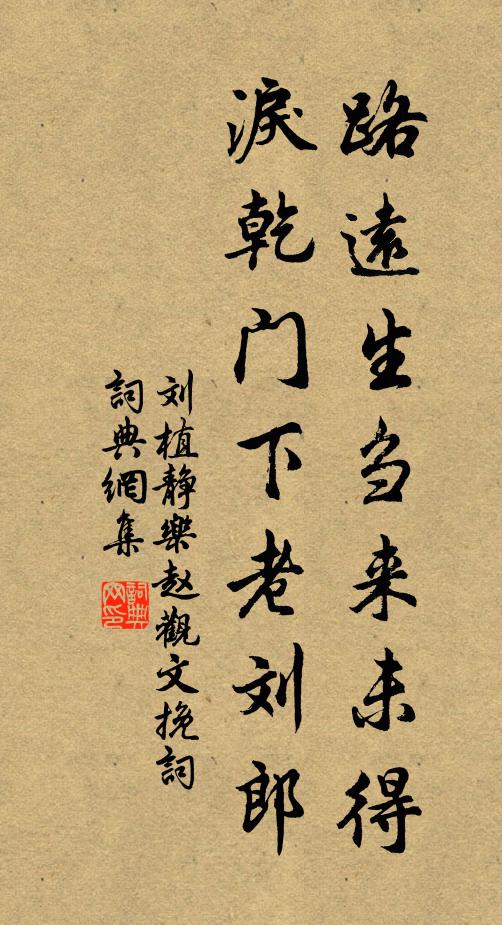 路遠生芻来未得
淚乾門下老刘郎
刘植静樂赵觀文挽詞
詞典網集
詞典网印